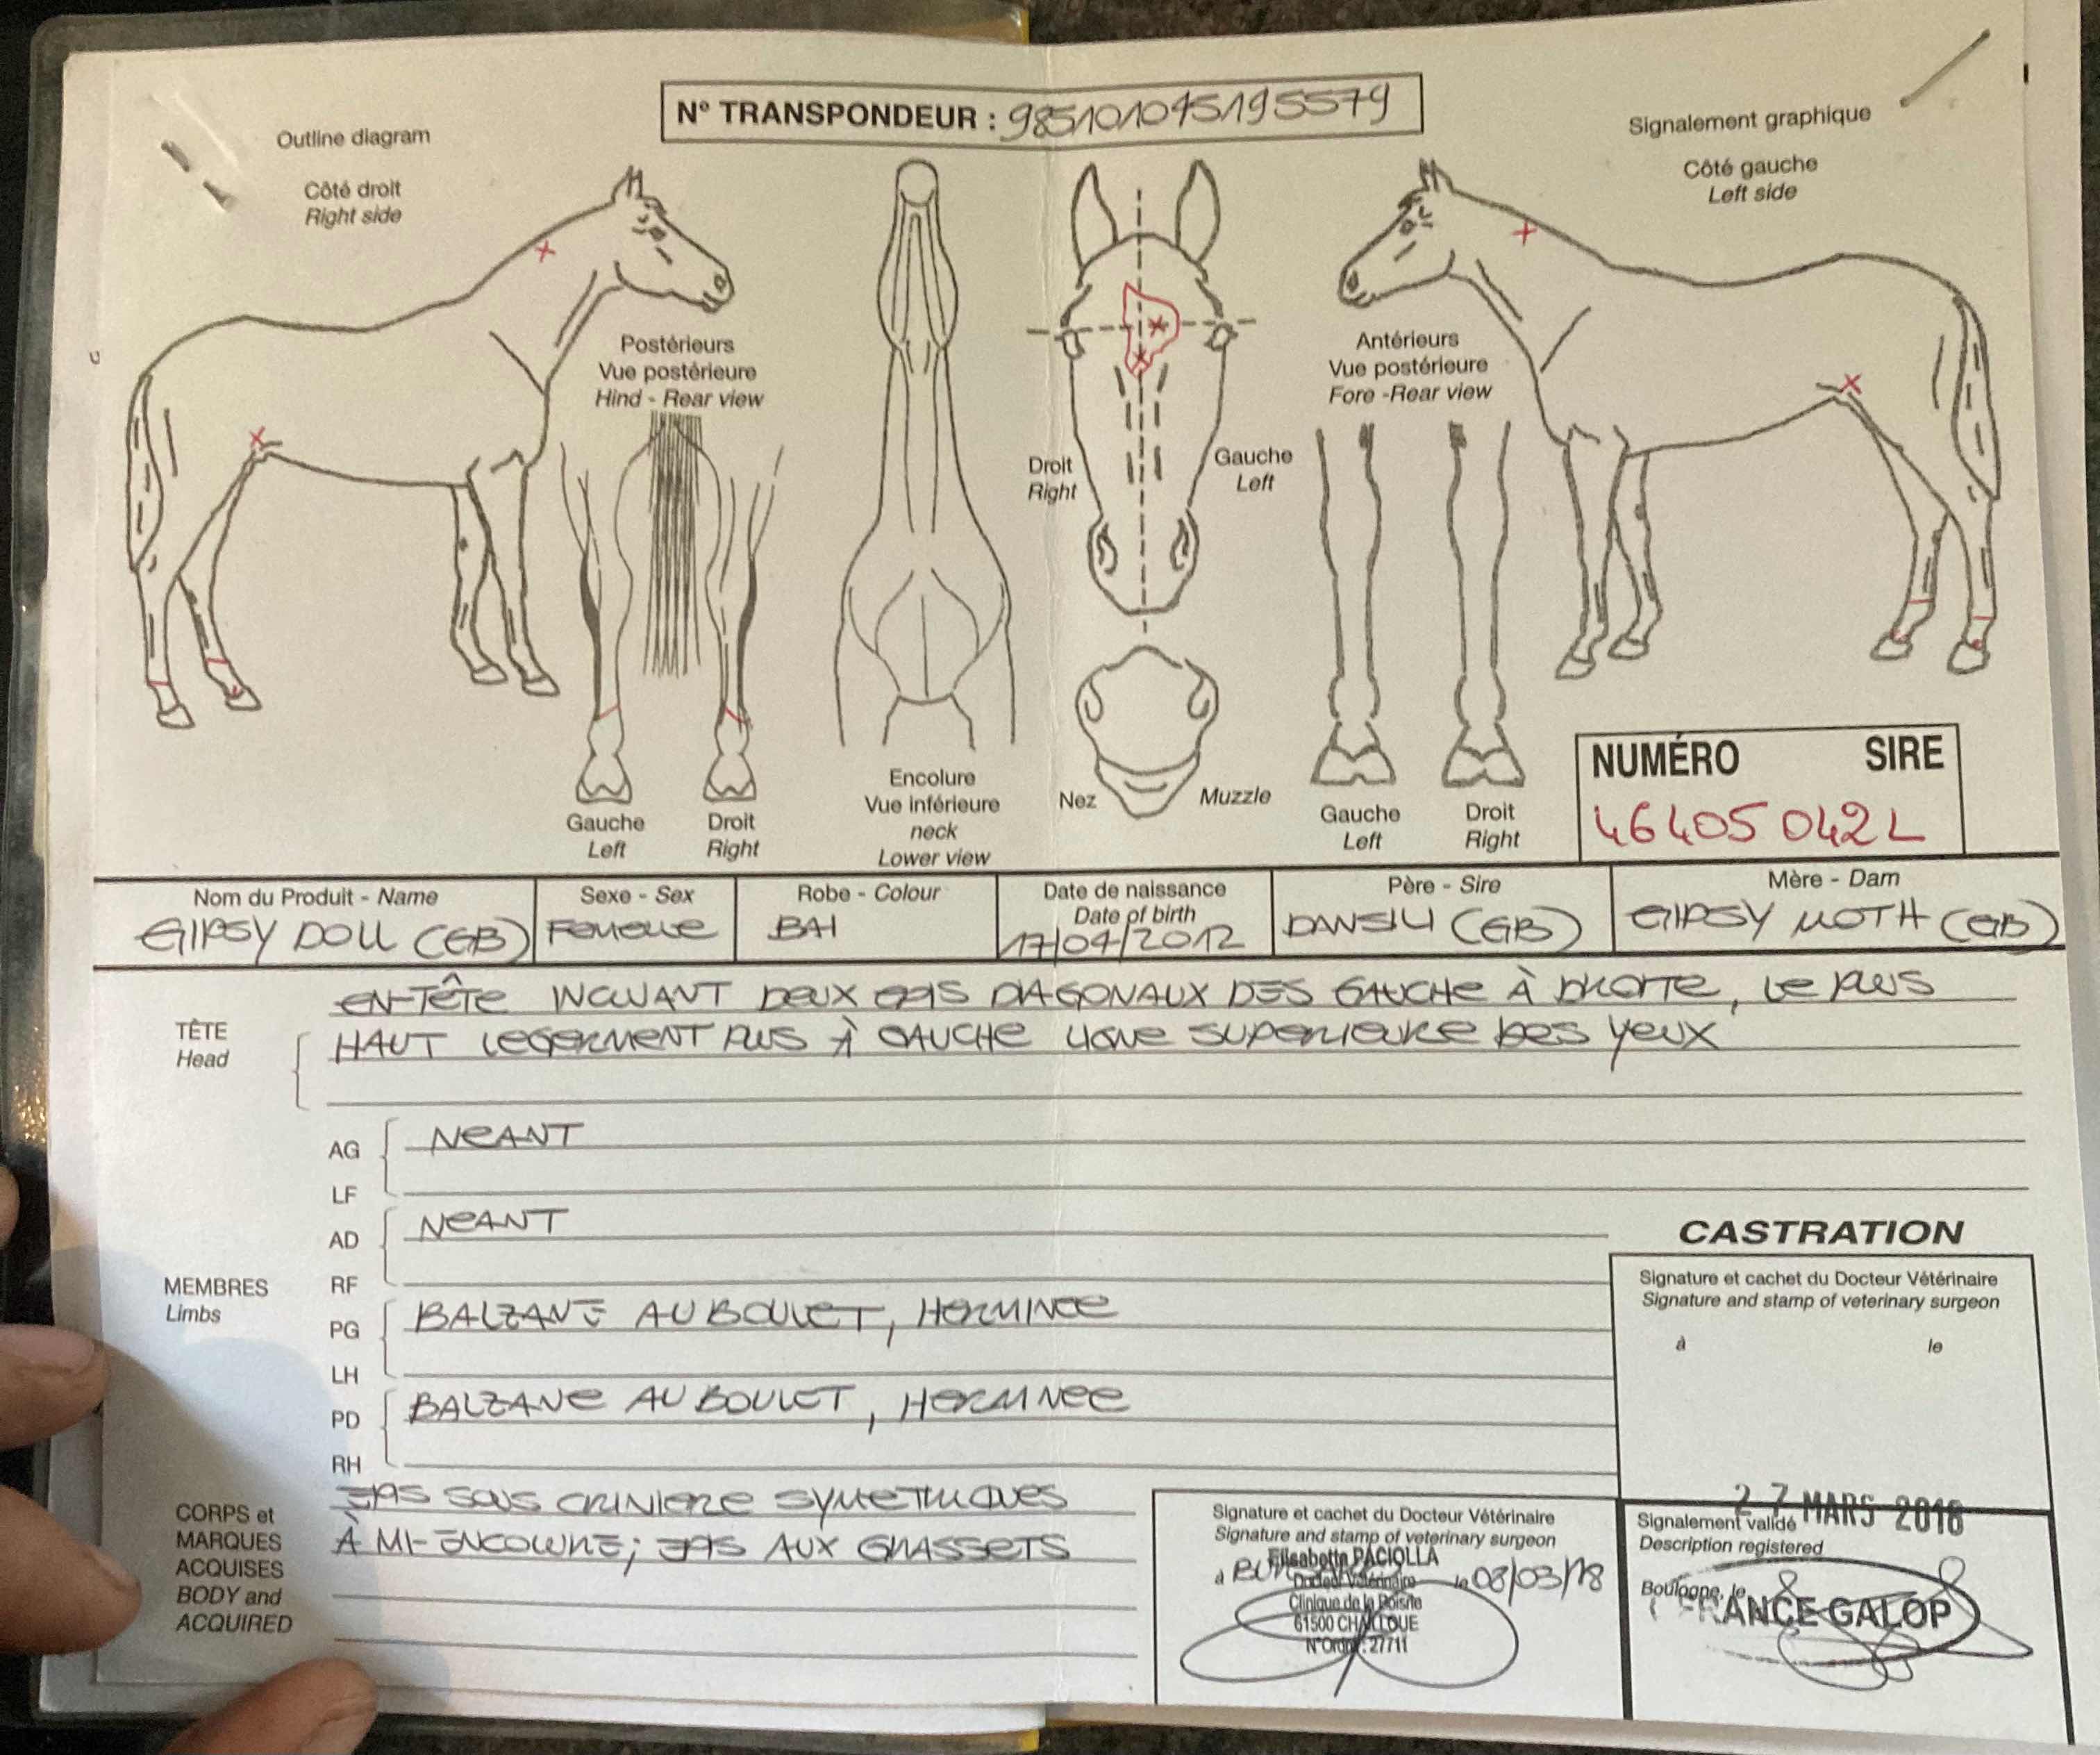 N° TRANSPONDEUR : 985101045195579
Outline diagram
Côté droit
Right side
Signalement graphique
Côté gauche
Left side
Postérieurs
Vue postérieure
Hind - Rear view
Antérieurs
Vue postérieure
Fore -Rear view
Droit
Right
Gauche
Left
Gauche
Left
Droit
Right
Encolure
Vue inférieure
neck
Lower view
Nez
Muzzle
Gauche
Left
Droit
Right
NUMÉRO SIRE
46405042L
Nom du Produit - Name
GIPSY DOLL (GB)
Sexe - Sex
Femelle
Robe - Colour
BAI
Date de naissance
Date of birth
17/04/2012
Père - Sire
DANSILI (GB)
Mère - Dam
GIPSY MOTH (GB)
TÊTE
Head
EN-TÊTE INCLUANT DEUX EPIS DIAGONAUX DES GAUCHE À DROITE, LE PLUS
HAUT LEGERMENT PLUS À GAUCHE LIGNE SUPERIEURE DES YEUX
MEMBRES
Limbs
AG
LF
NEANT
AD
RF
NEANT
PG
LH
BALZANE AU BOULET, HERMINEE
PD
RH
BALZANE AU BOULET, HERMINEE
CORPS et
MARQUES
ACQUISES
BODY and
ACQUIRED
EPIS SOUS CRINIERE SYMETRIQUES
À MI-ENCOLURE; EPIS AUX GRASSETS
CASTRATION
Signature et cachet du Docteur Vétérinaire
Signature and stamp of veterinary surgeon
à le
Signature et cachet du Docteur Vétérinaire
Signature and stamp of veterinary surgeon
Elisabetta PACIOLLA
à le 08/03/18
Docteur Vétérinaire
Clinique de la Boisrie
61500 CHAILLOUE
N°Ordre: 27711
27 MARS 2018
Signalement validé
Description registered
Boulogne, le
FRANCE GALOP